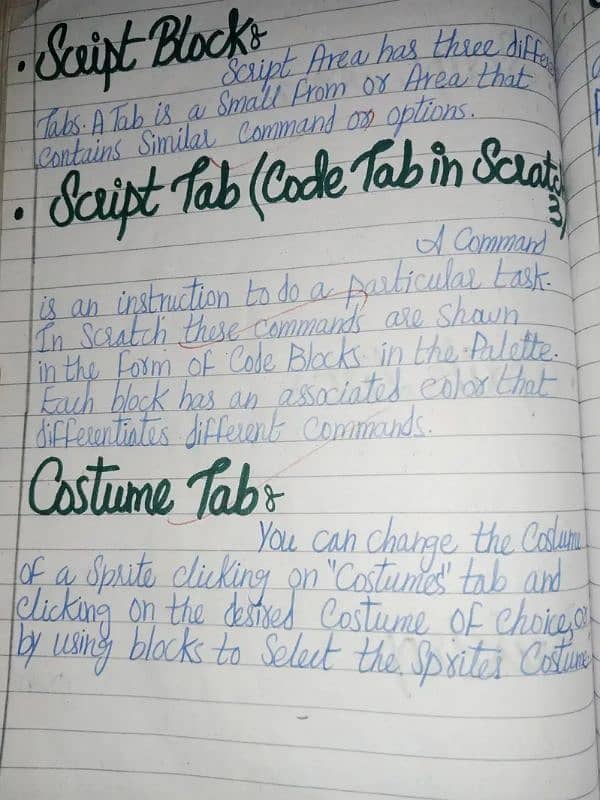 • Script Block:
Script Area has three diffe
Tabs. A Tab is a Small From or Area that
Contains Similar Command or options.
• Script Tab (Code Tab in Scratch
3)
A Command
is an instruction to do a particular task.
In Scratch these commands are Shown
in the Form of Code Blocks in the Palette.
Each block has an associated color that
differentiates different Commands.
Costume Tab:
You can change the Costume
of a Sprite clicking on "Costumes" tab and
clicking on the desired Costume of Choice, or
by using blocks to Select the Sprites Costume